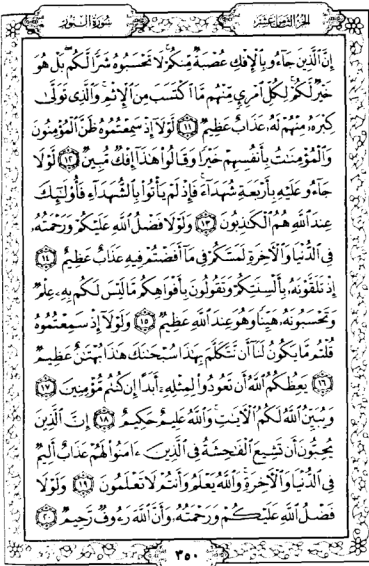 الجزء الثامن عشر
سورة النور
إِنَّ الَّذِينَ جَاءُو بِالْإِفْكِ عُصْبَةٌ مِّنكُمْ لَا تَحْسَبُوهُ شَرًّا لَّكُم بَلْ هُوَ
خَيْرٌ لَّكُمْ لِكُلِّ امْرِئٍ مِّنْهُم مَّا اكْتَسَبَ مِنَ الْإِثْمِ وَالَّذِي تَوَلَّىٰ
كِبْرَهُ مِنْهُمْ لَهُ عَذَابٌ عَظِيمٌ ١١ لَّوْلَا إِذْ سَمِعْتُمُوهُ ظَنَّ الْمُؤْمِنُونَ
وَالْمُؤْمِنَٰتُ بِأَنفُسِهِمْ خَيْرًا وَقَالُوا هَٰذَا إِفْكٌ مُّبِينٌ ١٢ لَّوْلَا
جَاءُو عَلَيْهِ بِأَرْبَعَةِ شُهَدَاءَ فَإِذْ لَمْ يَأْتُوا بِالشُّهَدَاءِ فَأُولَٰئِكَ
عِندَ اللَّهِ هُمُ الْكَٰذِبُونَ ١٣ وَلَوْلَا فَضْلُ اللَّهِ عَلَيْكُمْ وَرَحْمَتُهُ
فِي الدُّنْيَا وَالْآخِرَةِ لَمَسَّكُمْ فِي مَا أَفَضْتُمْ فِيهِ عَذَابٌ عَظِيمٌ ١٤
إِذْ تَلَقَّوْنَهُ بِأَلْسِنَتِكُمْ وَتَقُولُونَ بِأَفْوَاهِكُم مَّا لَيْسَ لَكُم بِهِ عِلْمٌ
وَتَحْسَبُونَهُ هَيِّنًا وَهُوَ عِندَ اللَّهِ عَظِيمٌ ١٥ وَلَوْلَا إِذْ سَمِعْتُمُوهُ
قُلْتُم مَّا يَكُونُ لَنَا أَن نَّتَكَلَّمَ بِهَٰذَا سُبْحَٰنَكَ هَٰذَا بُهْتَٰنٌ عَظِيمٌ
١٦ يَعِظُكُمُ اللَّهُ أَن تَعُودُوا لِمِثْلِهِ أَبَدًا إِن كُنتُم مُّؤْمِنِينَ ١٧
وَيُبَيِّنُ اللَّهُ لَكُمُ الْآيَٰتِ وَاللَّهُ عَلِيمٌ حَكِيمٌ ١٨ إِنَّ الَّذِينَ
يُحِبُّونَ أَن تَشِيعَ الْفَٰحِشَةُ فِي الَّذِينَ ءَامَنُوا لَهُمْ عَذَابٌ أَلِيمٌ
فِي الدُّنْيَا وَالْآخِرَةِ وَاللَّهُ يَعْلَمُ وَأَنتُمْ لَا تَعْلَمُونَ ١٩ وَلَوْلَا
فَضْلُ اللَّهِ عَلَيْكُمْ وَرَحْمَتُهُ وَأَنَّ اللَّهَ رَءُوفٌ رَّحِيمٌ ٢٠
٣٥٠